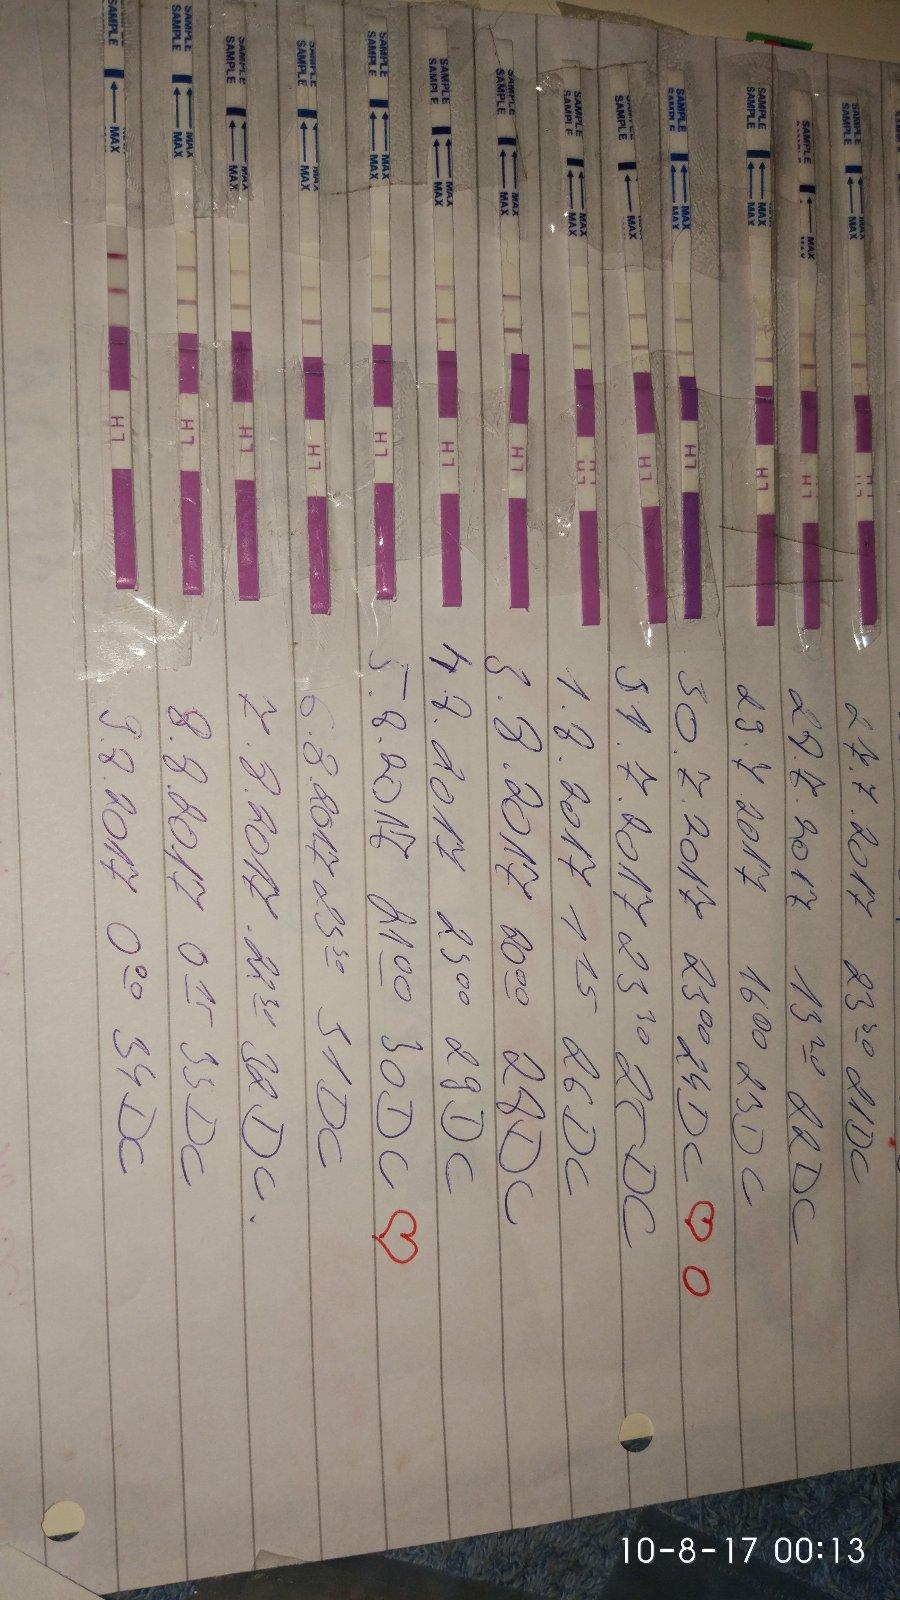 SAMPLE MAX LH 27.7.2017 23 30 21DC
SAMPLE MAX LH 28.7.2017 13 20 22DC
SAMPLE MAX LH 29.7.2017 16 00 23DC
SAMPLE MAX LH 30.7.2017 23 00 24DC ♡ O
SAMPLE MAX LH 31.7.2017 23 30 25DC
SAMPLE MAX LH 1.8.2017 1 15 26DC
SAMPLE MAX LH 3.8.2017 20 00 28DC
SAMPLE MAX LH 4.8.2017 23 00 29DC
SAMPLE MAX LH 5.8.2017 21 00 30DC ♡
SAMPLE MAX LH 6.8.2017 23 30 31DC
SAMPLE MAX LH 7.8.2017 22 30 32DC.
SAMPLE MAX LH 8.8.2017 0 15 33DC
SAMPLE MAX LH 9.8.2017 0 20 34DC
10-8-17 00:13